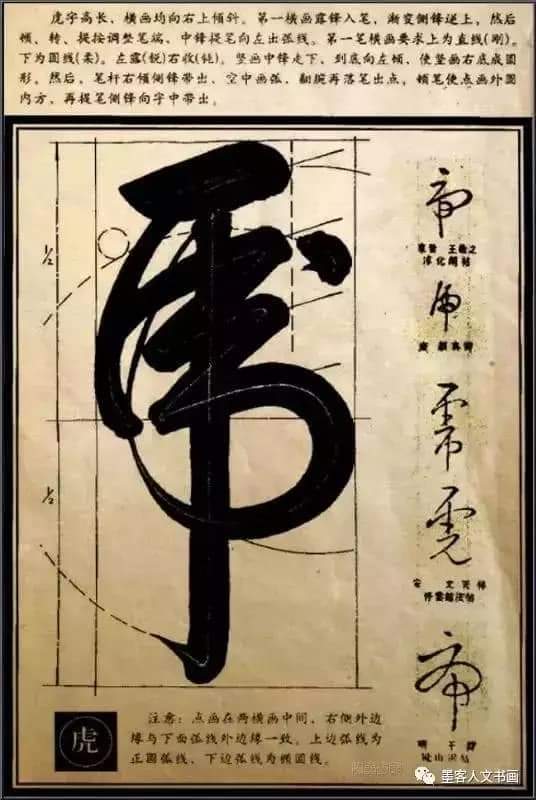 虎字高长，横画均向右上倾斜。第一横画露锋入笔，渐变侧锋逆上，然后
顿、转、提按调整笔端，中锋提笔向左出弧线。第一笔横画要求上为直线(刚)。
下为圆线(柔)。左露(锐)右收(钝)。竖画中锋走下，到底向左顿，使竖画右底成圆
形。然后，笔杆右倾侧锋带出，空中画弧，翻腕再落笔出点，顿笔使点画外圆
内方，再提笔侧锋向字中带出。
½
½
虎
东晋 王羲之
淳化阁帖
唐 颜真卿
虎
注意：点画在两横画中间，右侧外边
缘与下面弧线外边缘一致。上边弧线为
正圆弧线，下边弧线为椭圆线。
墨客人文书画